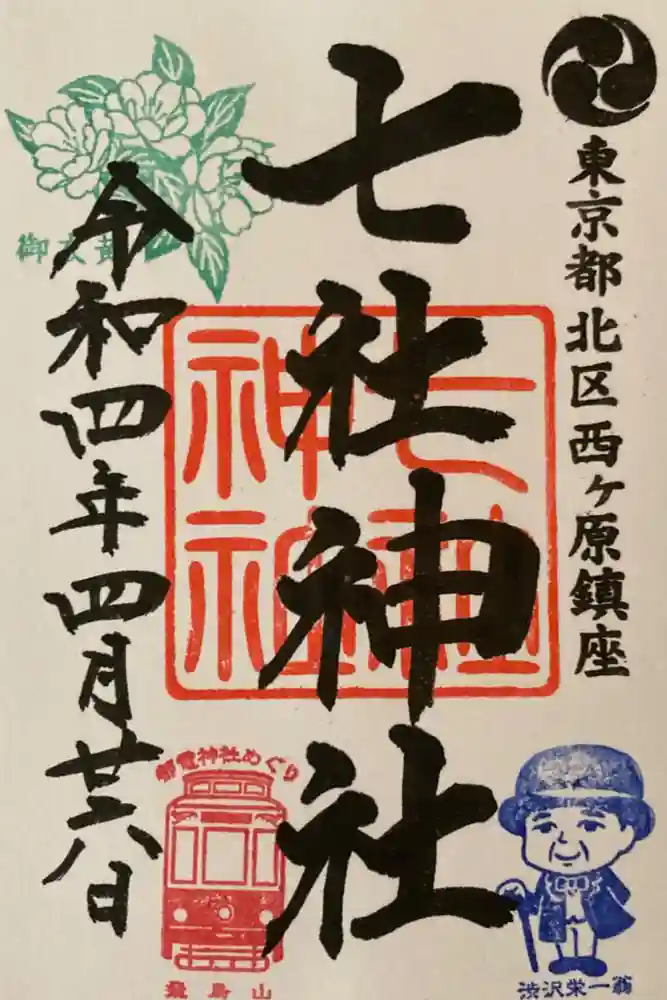 東京都北区西ヶ原鎮座
七社神社
七社
神社
令和四年四月廿六日
御衣黄
都電神社めぐり
飛鳥山
渋沢栄一翁